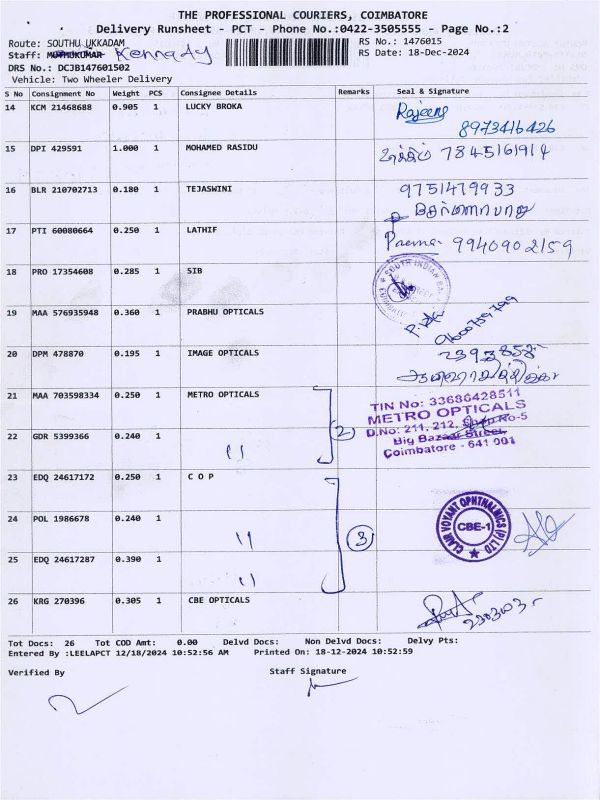 THE PROFESSIONAL COURIERS, COIMBATORE
Delivery Runsheet - PCT - Phone No.:0422-3505555 - Page No.:2
Route: SOUTHU UKKADAM
Staff: MUTHUKUMAR Kennady
RS No.: 1476015
RS Date: 18-Dec-2024
DRS No.: DCJB147601502
Vehicle: Two Wheeler Delivery
S No Consignment No Weight PCS Consignee Details Remarks Seal & Signature
14 KCM 21468688 0.905 1 LUCKY BROKA
8973416426
15 DPI 429591 1.000 1 MOHAMED RASIDU 7845161914
16 BLR 210702713 0.180 1 TEJASWINI 9751479933
17 PTI 60080664 0.250 1 LATHIF Prema 9940902159
18 PRO 17354608 0.285 1 SIB
19 MAA 576935948 0.360 1 PRABHU OPTICALS
20 DPM 478870 0.195 1 IMAGE OPTICALS
21 MAA 703598334 0.250 1 METRO OPTICALS
TIN No: 33686428511
METRO OPTICALS
D.No: 211, 212, Shop No-5
Big Bazaar Street,
Coimbatore - 641 001
2
22 GDR 5399366 0.240 1 "
23 EDQ 24617172 0.250 1 C O P
24 POL 1986678 0.240 1 "
3
CLAIR VOYANT OPHTHALMICS (P) LTD
CBE-1
25 EDQ 24617287 0.390 1 "
26 KRG 270396 0.305 1 CBE OPTICALS
Tot Docs: 26 Tot COD Amt: 0.00 Delvd Docs: Non Delvd Docs: Delvy Pts:
Entered By :LEELAPCT 12/18/2024 10:52:56 AM Printed On: 18-12-2024 10:52:59
Verified By Staff Signature